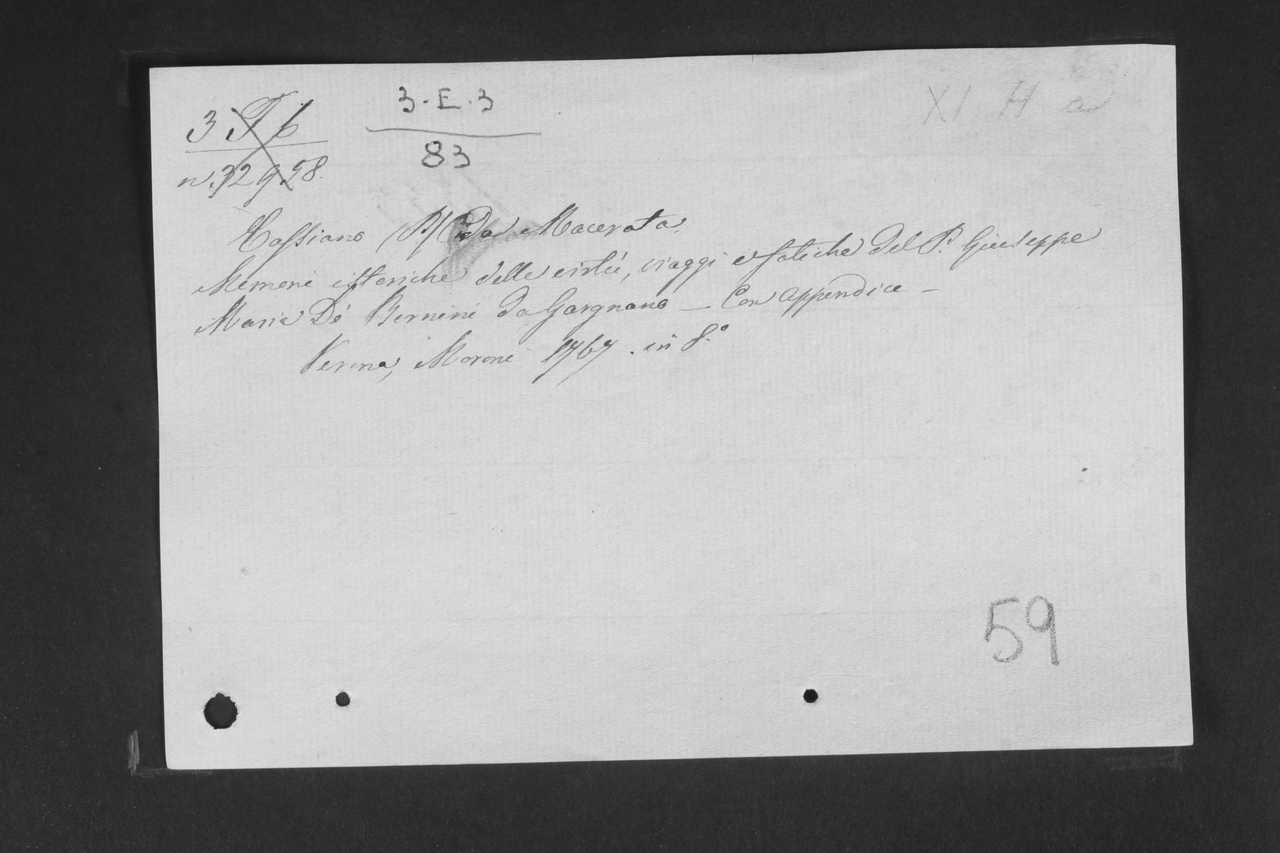 3 T 6
n. 32958.
3. E. 3
83
XI H a
Cassiano (P) da Macerata.
Memorie istoriche delle virtù, viaggi e fatiche del P. Giuseppe
Maria De' Bernini da Gargnano — Con appendice —
Verona, Moroni 1767. in 8.°
59